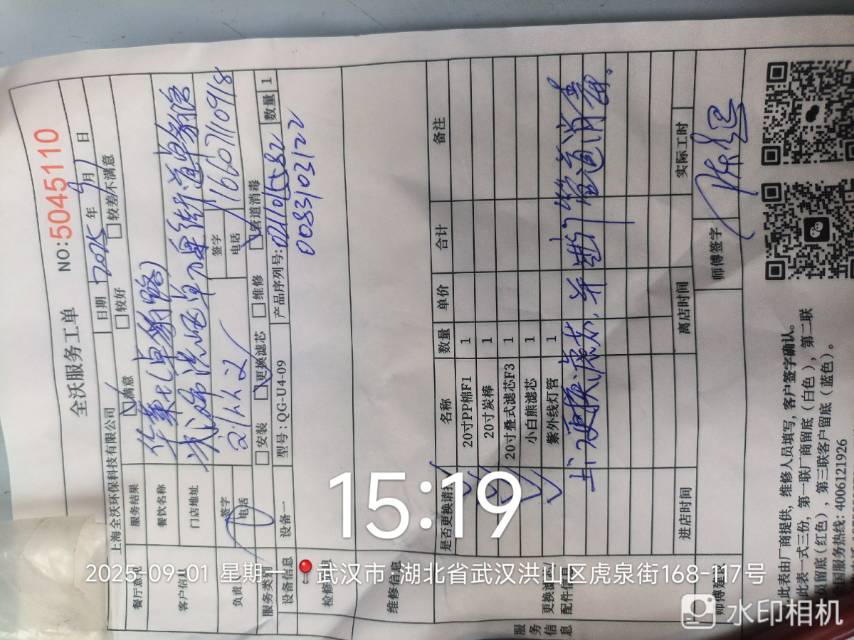 全沃服务工单
NO:5045110
上海全沃环保科技有限公司
日期 2025 年 9 月 1 日
餐厅意见 服务结果 满意 较好 较差不满意
客户信息 餐饮名称
门店地址
签字 电话
签字 电话 16607110918
服务类 安装 更换滤芯 维修 管道消毒
设备信息 设备一 型号:QG-U4-09 产品序列号: 数量 1
0083103122
检修
维修信息
是否更换请 名称 数量 单价 合计 备注
20寸PP棉F1 1
20寸炭棒 1
20寸叠式滤芯F3 1
小白熊滤芯 1
紫外线灯管 1
更换 配件信
上门更换滤芯,并进行管道消毒
服务信息 进店时间 离店时间 实际工时
师傅签字
此表由厂商提供,维修人员填写,客户签字确认。
此表一式三份,第一联厂商留底(白色),第二联
留底(红色),第三联客户留底(蓝色)。
国服务热线:4006121926
15:19
2025-09-01 星期一 武汉市·湖北省武汉洪山区虎泉街168-117号
水印相机